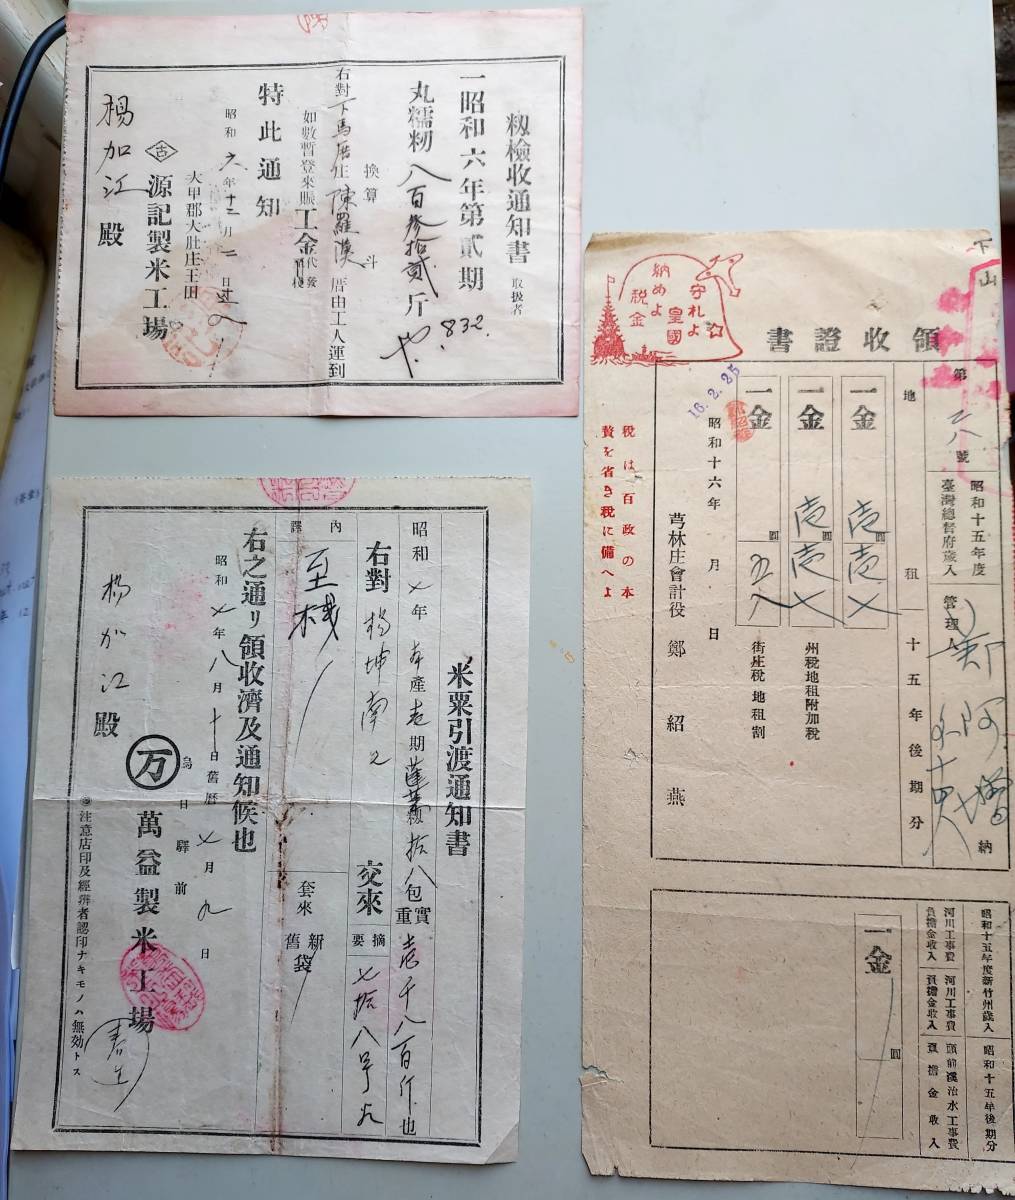 籾檢收通知書
取扱者
一昭和六年第貳期
丸糯籾八百參拾貳斤
832.
換算 斗
右對下馬厝庄陳羅漢厝由工人運到
如數暫登來賬工金代發
特此通知
昭和六年十二月二日
大甲郡大肚庄王田
源記製米工場
楊加江殿
米粟引渡通知書
昭和七年本產壱期蓬萊籾拾八包實重壱千八百斤也
右對楊坤南兄交來
摘要
七拾八号
內譯
至棧
套來
新舊袋
右之通リ領收濟及通知候也
昭和七年八月十日舊曆七月九日
烏日驛前
万
萬益製米工場
楊加江殿
注意店印及經辨者認印ナキモノハ無効トス
下山
領收證書
守れよ皇國
納めよ稅金
第二八號
昭和十五年度
臺灣總督府歲入
管理人
納
地租 十五年後期分
一金 圓
一金 圓 州稅地租附加稅
一金 圓 五八 街庄稅地租割
16.2.25
昭和十六年 月 日
芎林庄會計役 鄭紹燕
稅は百政の本
贅を省き稅に備へよ
昭和十五年度新竹州歲入
昭和十五年後期分
河川工事費負擔金收入
河川工事費負擔金收入
頭前溪治水工事費負擔金收入
一金 圓